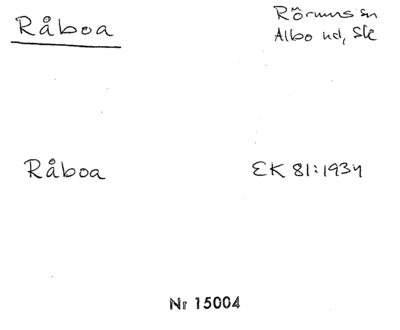 Råboa
Rörums sn
Albo hd, Sk
Råboa
EK 81:1934
Nr 15004